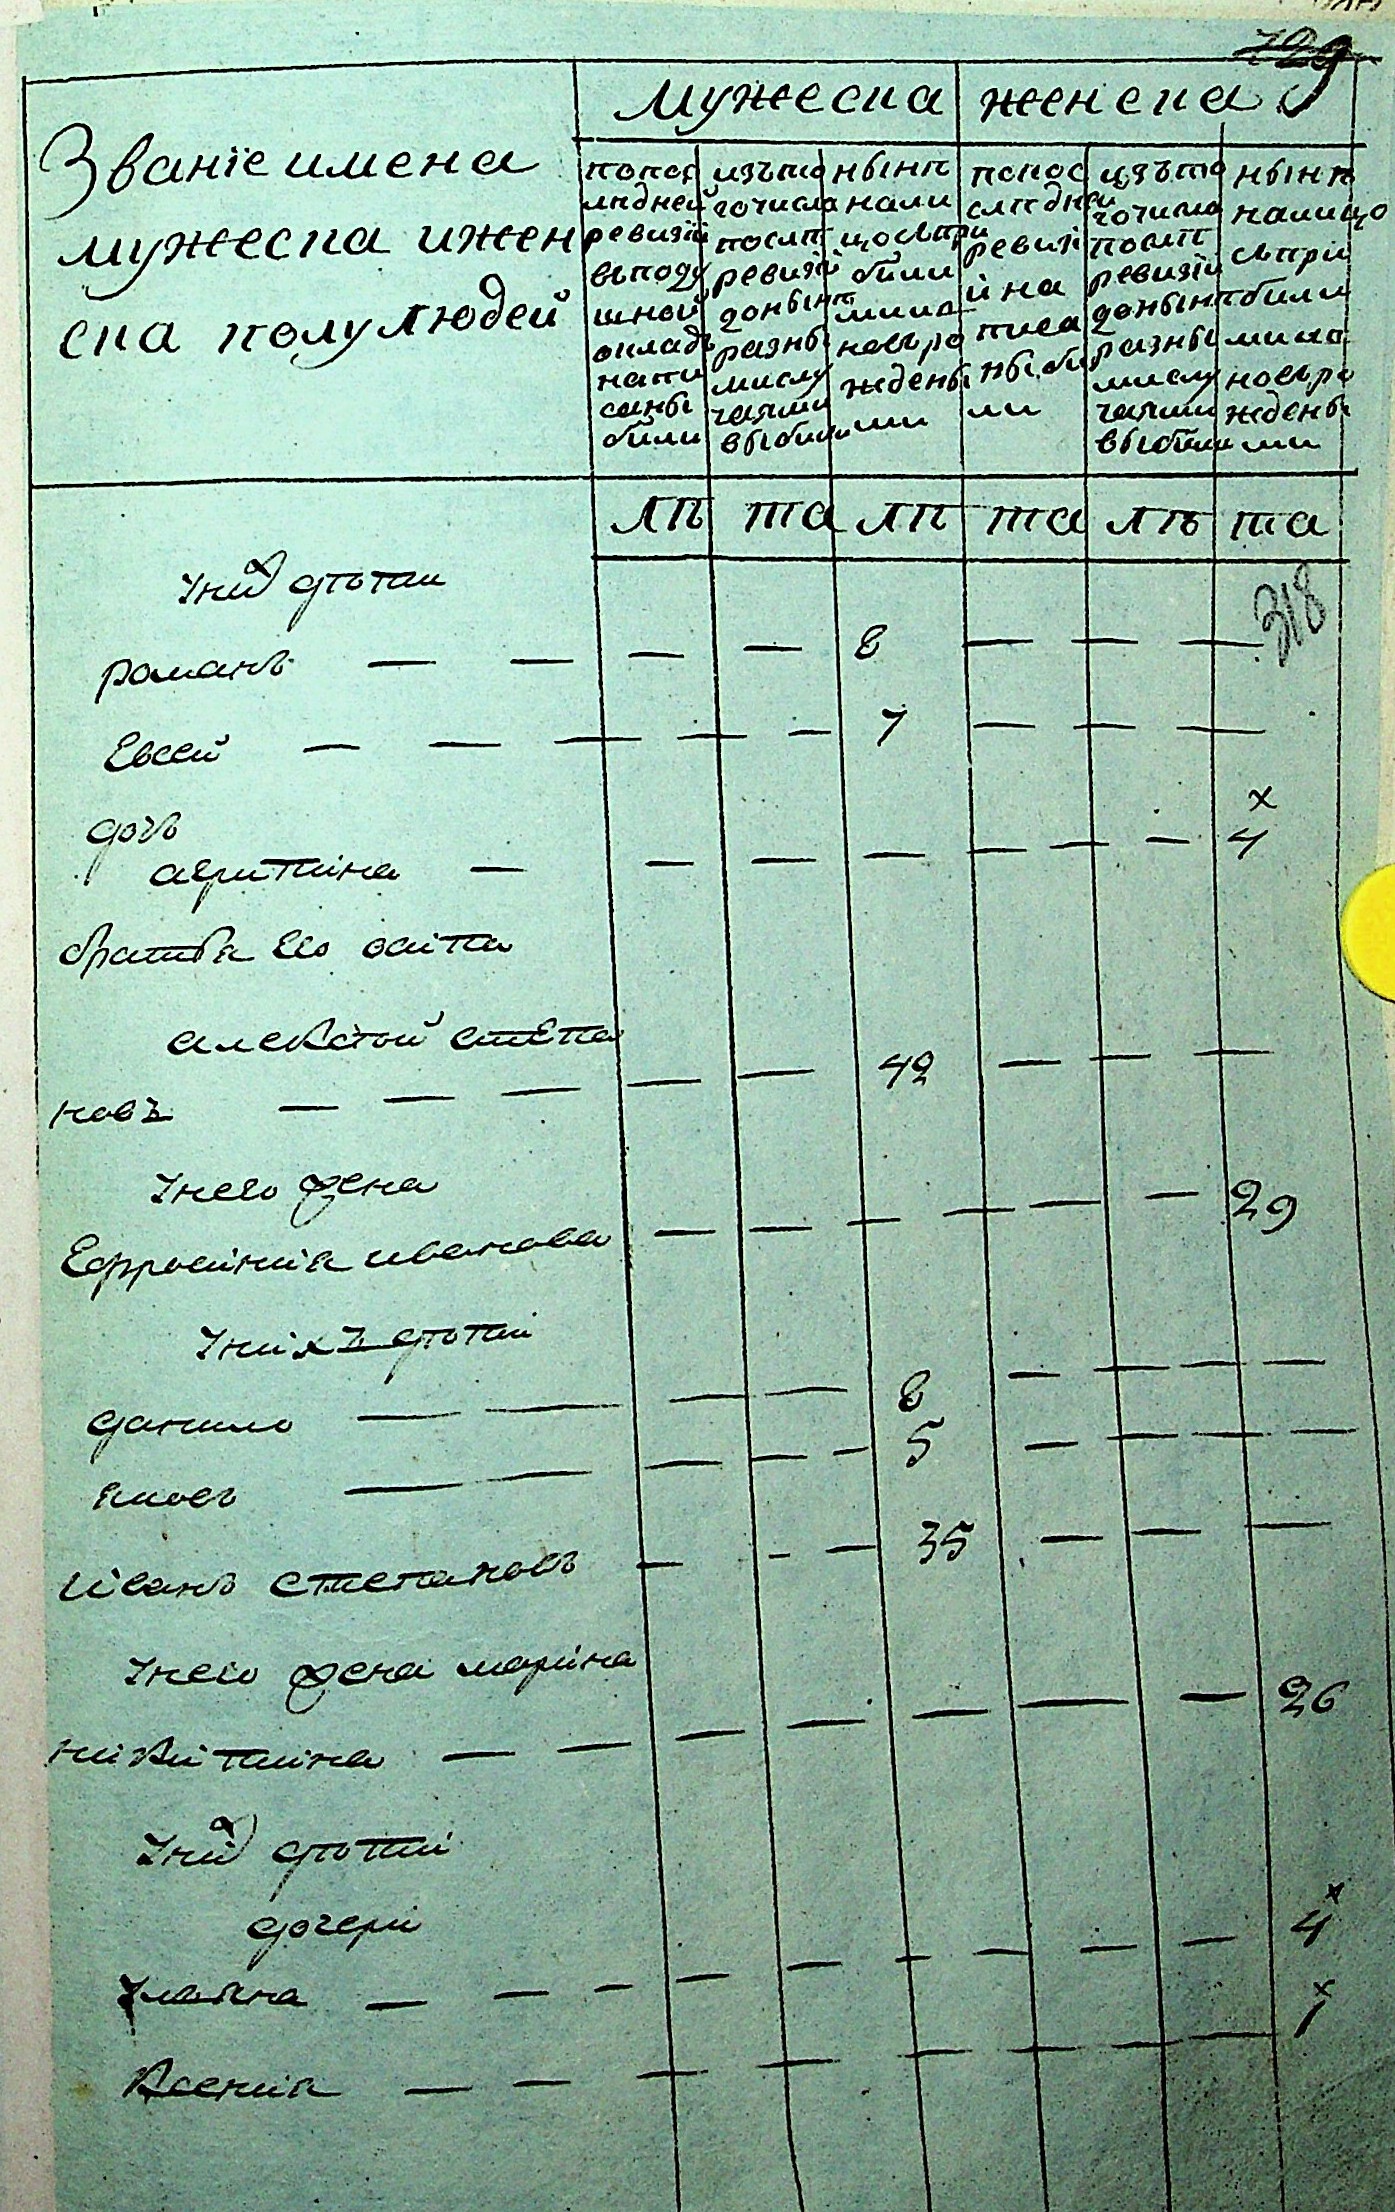 729
мужеска женска
Званїе имена
мужеска ижен
ска полу людей
попос
лѣдней
ревизїи
вьподу
шной
окладъ
напи
саны
были
изъто
гочисла
послѣ
ревизїи
донынѣ
разны
мислу
чаями
выбыли
нынѣ
нали
цосьпри
были
мииа
новъро
ждены
ми
попос
слѣдней
ревизї
й на
писа
ны бы
ли
изъто
гочисла
послѣ
ревизїи
донынѣ
разны
мислу
чаями
выбыли
нынѣ
налицо
сьпри
были
мииа
новъро
ждены
ми
лѣ та лѣ та лѣ та
318
Уних дѣтѣи
романъ — — — — 8 — — —
Евсей — — — — — 7 — — —
дочь х
агритина — — — — — — — 4
братья Его осипа
алексѣй степа
новъ — — — — — 42 — — —
Унего жена
Ефросинія иванова — — — — — — 29
Унихъ дѣти
данило — — — — 8 — — — —
яковъ — — — — — 5 — — — —
иванъ степановъ — - — 35 — — —
Унего жена марина
никитина — — — — — — — — 26
Уних дѣти
дочери
х
Ульяна — — — — — — — — — 4
х
Ксенія — — — — — — — — 1